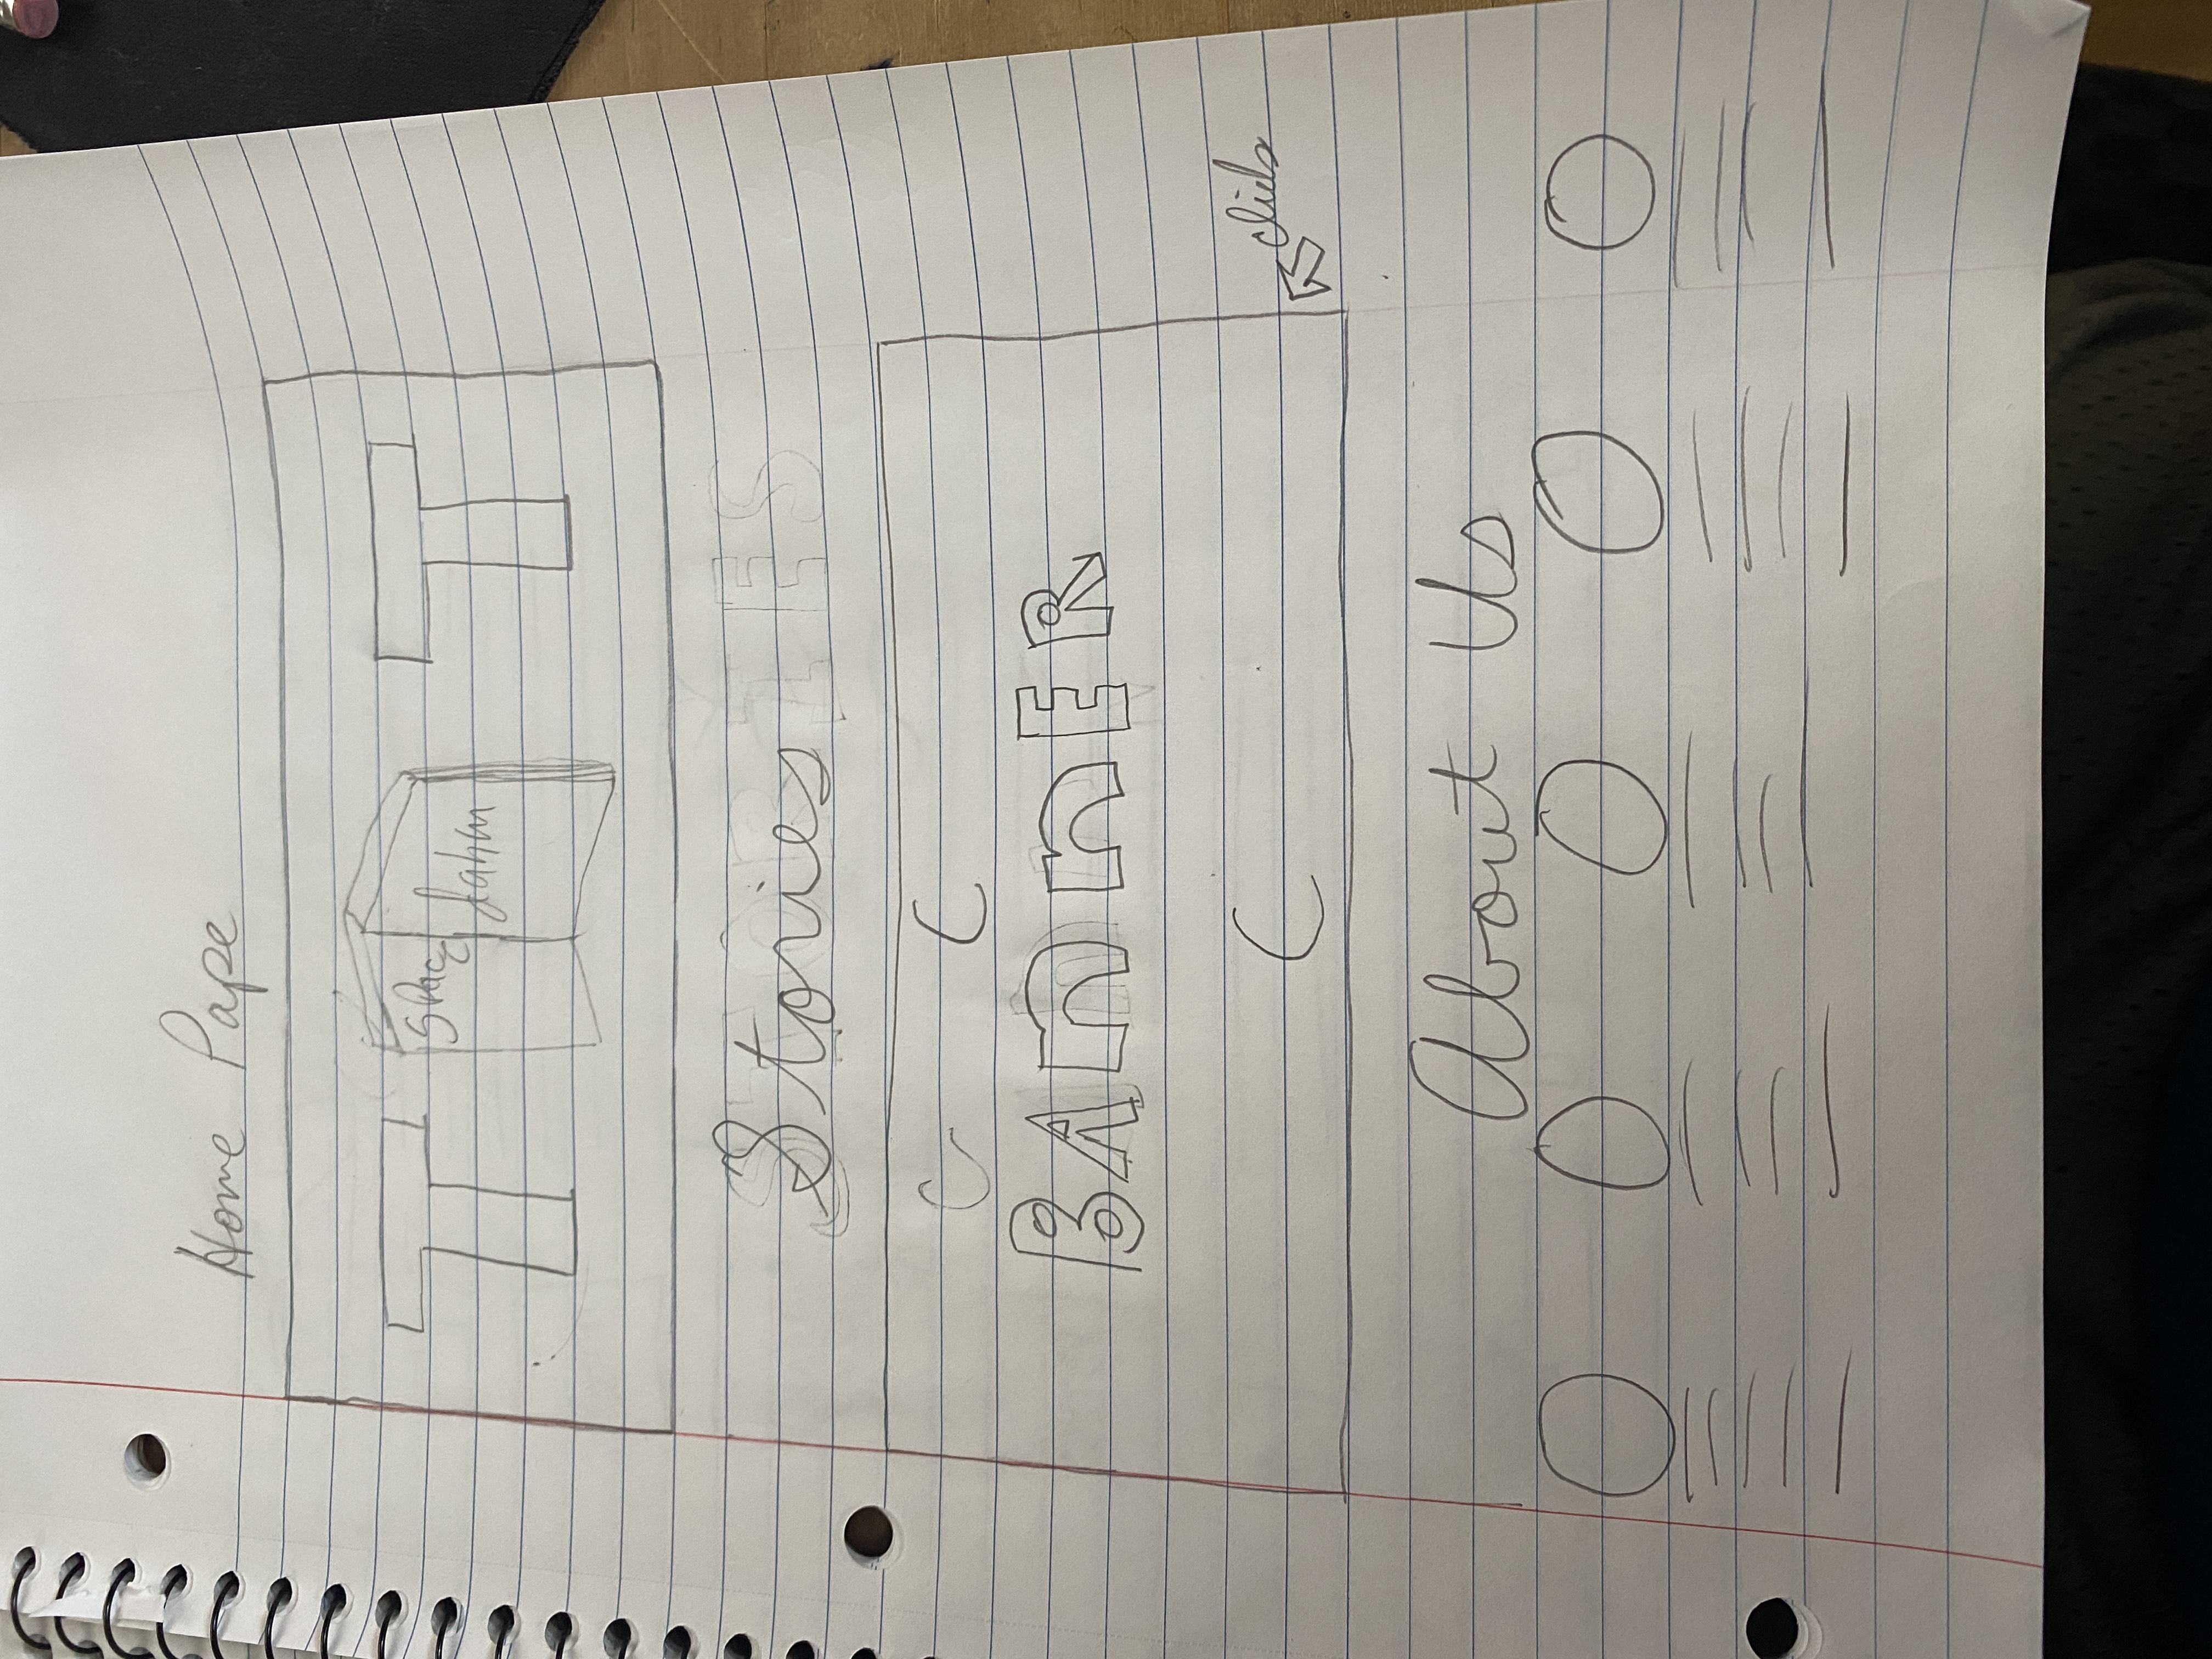 Home Pape
T T
Space
Stories
STORIES
C C
BAnnER
C
click
About Us